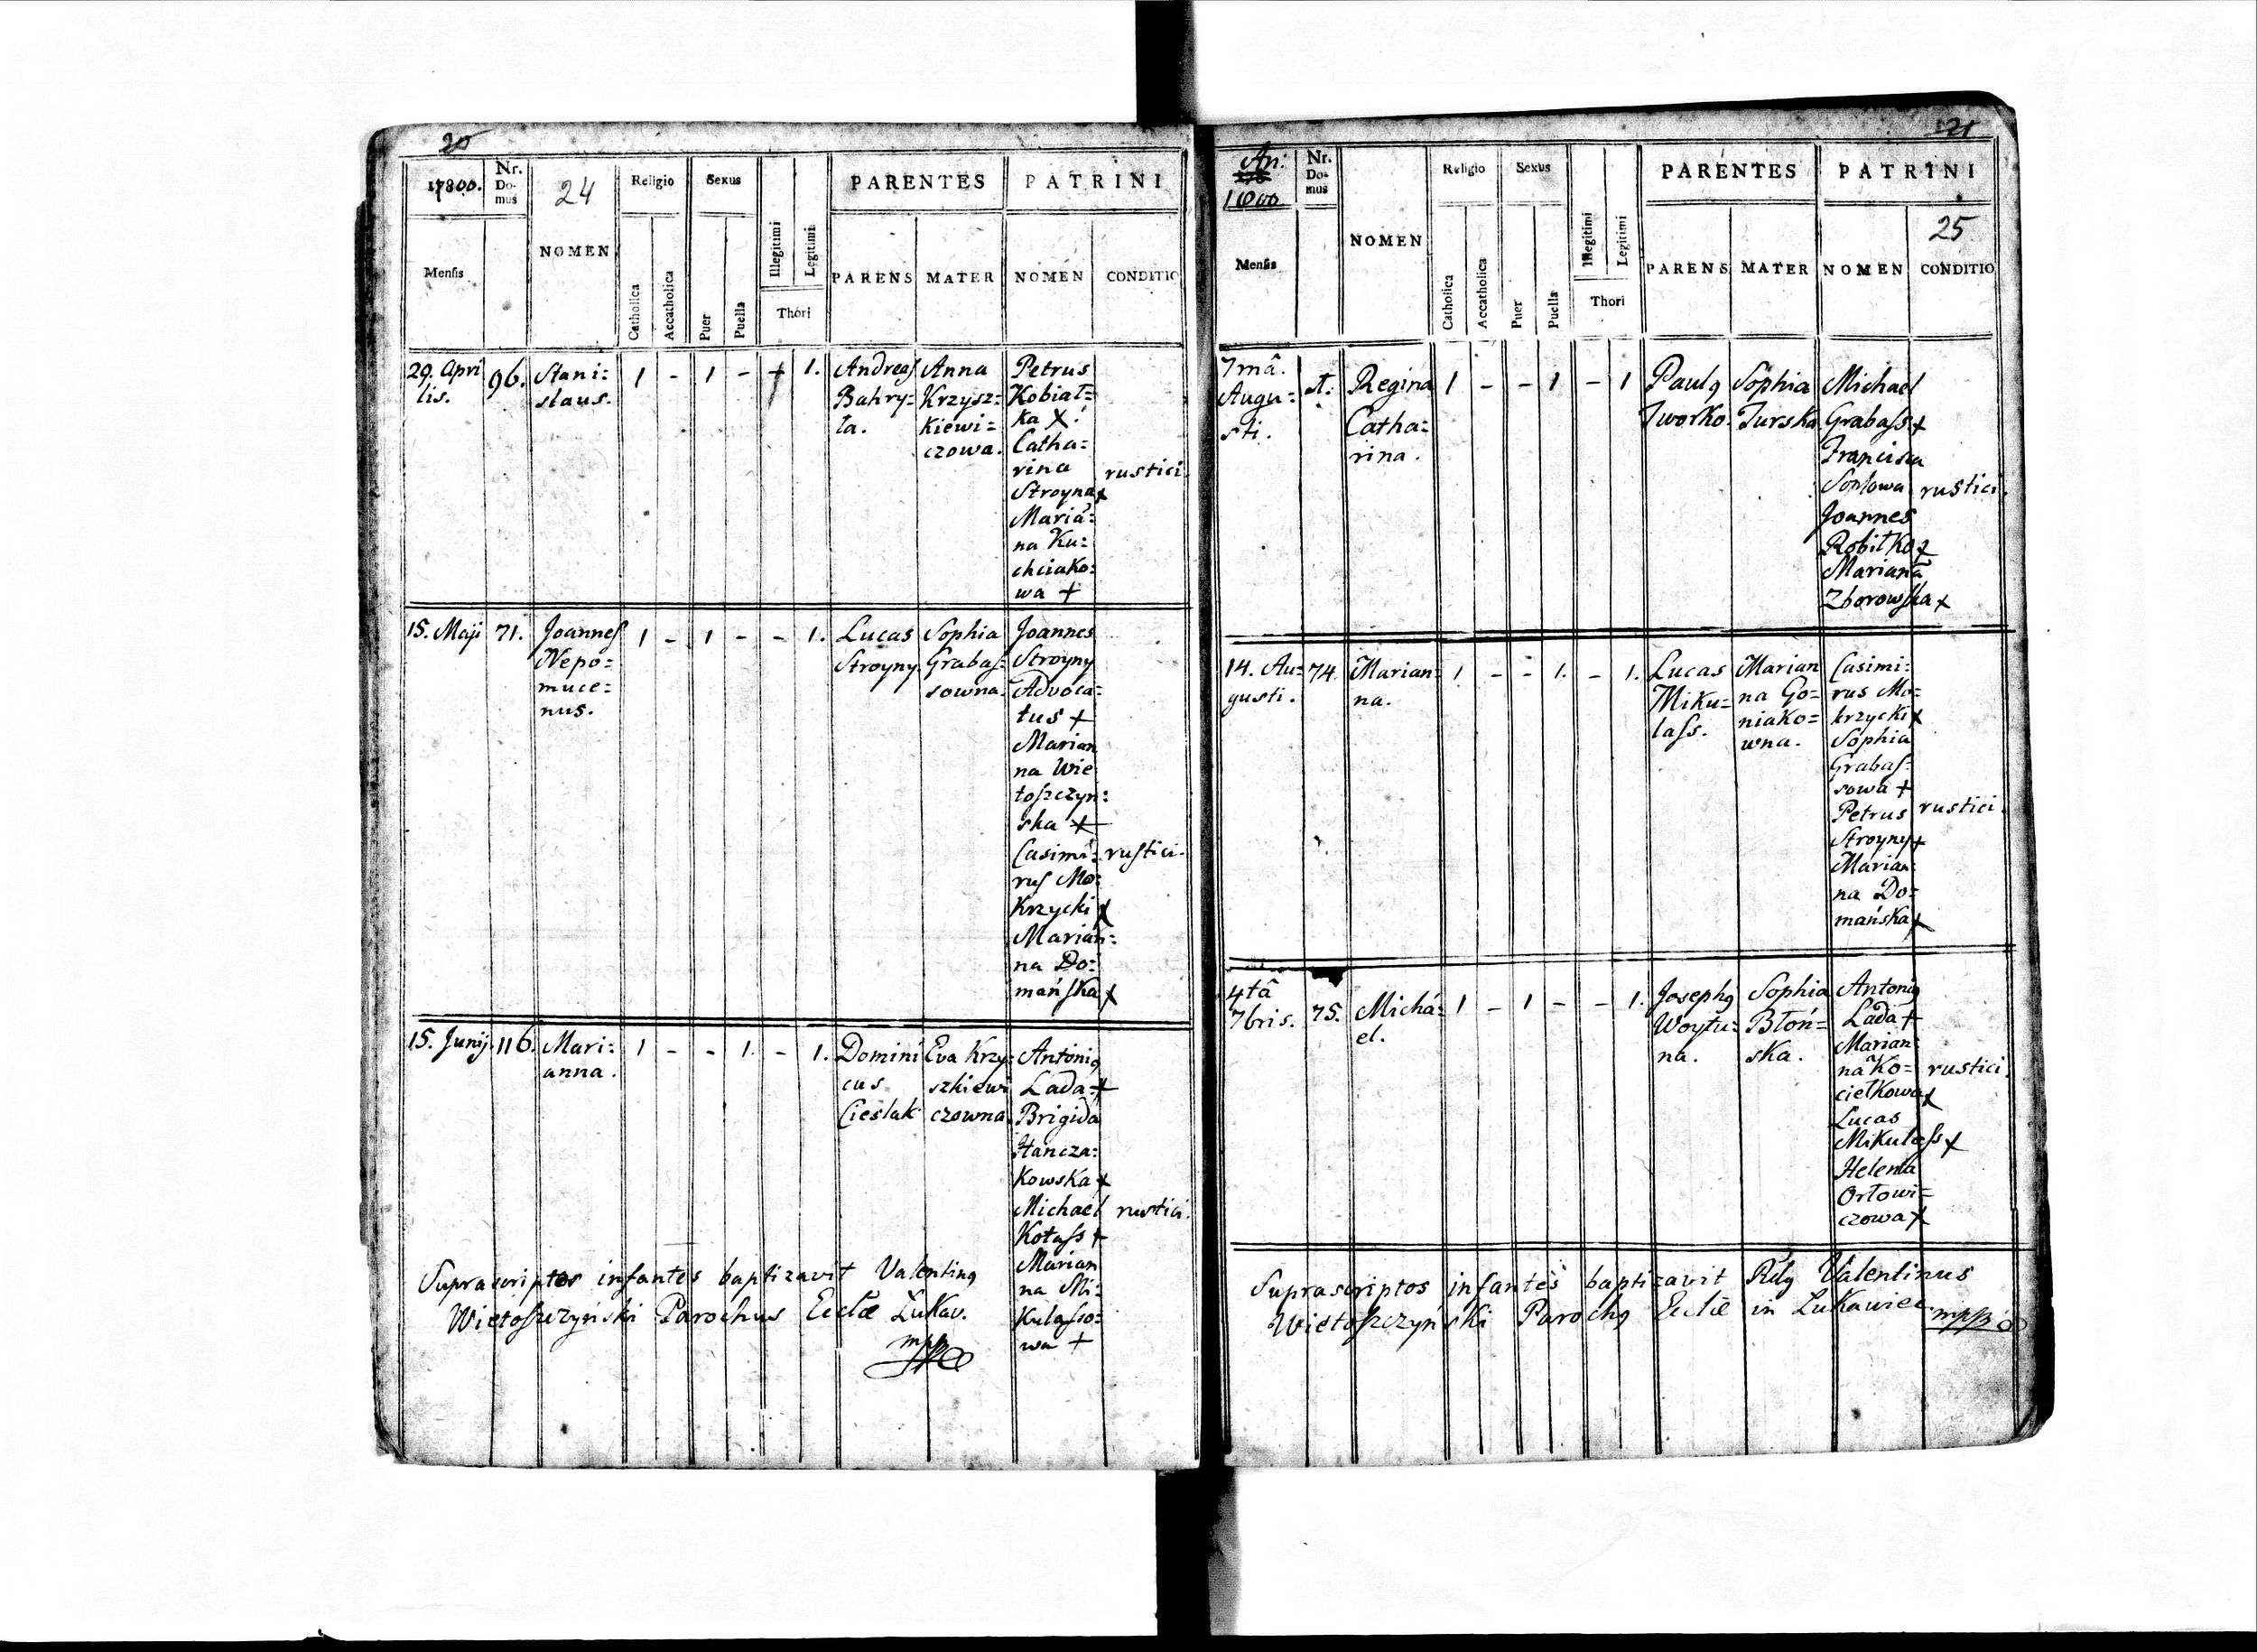 20
17800.
Nr.
Do-
mus
24
NOMEN
Religio
Sexus
Illegitimi
Legitimi
Thori
PARENTES
PATRINI
Mensis
Catholica
Accatholica
Puer
Puella
PARENS
MATER
NOMEN
CONDITIO
29. Apri
lis.
96.
Stani:
slaus.
1 - 1 - + 1.
Andreas
Bahry:
ła.
Anna
Krzysz:
kiewi:
czowa.
Petrus
Kobiał:
ka X
Catha:
rina
Stroyna x
Maria:
na Ku:
chciako:
wa +
rustici.
15. Maji
71.
Joannes
Nepo:
muce:
nus.
1 - 1 - - 1.
Lucas
Stroyny.
Sophia
Grabas:
sowna.
Joannes
Stroyny
Advoca:
tus +
Marian
na Wie
toszczyn:
ska +
Casimi:
rus Mo:
krzycki x
Marian:
na Do:
mańska x
rustici.
15. Junij
116.
Mari:
anna.
1 - - 1. - 1.
Domini
cus
Cieslak
Eva Krzy:
szkiewi
czowna
Antoni9
Łada +
Brigida
Hancza:
kowska x
Michael
Kołass +
Marian
na Mi:
kulasso:
wa +
rustici.
Suprascriptos infantes baptizavit Valentin9
Wietoszczyński Parochus Eccłæ Łukav.
mpp
21
An:
1800
Nr.
Do-
mus
NOMEN
Religio
Sexus
Illegitimi
Legitimi
Thori
PARENTES
PATRINI
25
Mensis
Catholica
Accatholica
Puer
Puella
PARENS
MATER
NOMEN
CONDITIO
7mâ.
Augu:
sti.
Regina
Catha:
rina.
1 - - 1 - 1
Paul9
Jworko.
Sophia
Turska.
Michael
Grabass +
Francisca
Joannes
Robitko x
Mariana
Zborowska x
rustici.
14. Au:
gusti.
74.
Marian:
na.
1. - - 1. - 1.
Lucas
Miku:
lass.
Marian
na Go:
niako:
wna.
Casimi:
rus Mo:
krzycki x
Sophia
Grabas:
sowa +
Petrus
Stroyny +
Marian:
na Do:
mańska x
rustici.
4tâ
7bris.
75.
Micha:
el.
1 - 1 - - 1.
Joseph9
Woytu:
na.
Sophia
Błoń:
ska.
Antoni9
Łada +
Marian:
na Ko:
ciełkowa x
Lucas
Mikulass x
Helena
Orłowi:
czowa x
rustici.
Suprascriptos infantes baptizavit Valentinus
Wietoszczyński Paroch9 Eccłæ in Łukawiec mpp